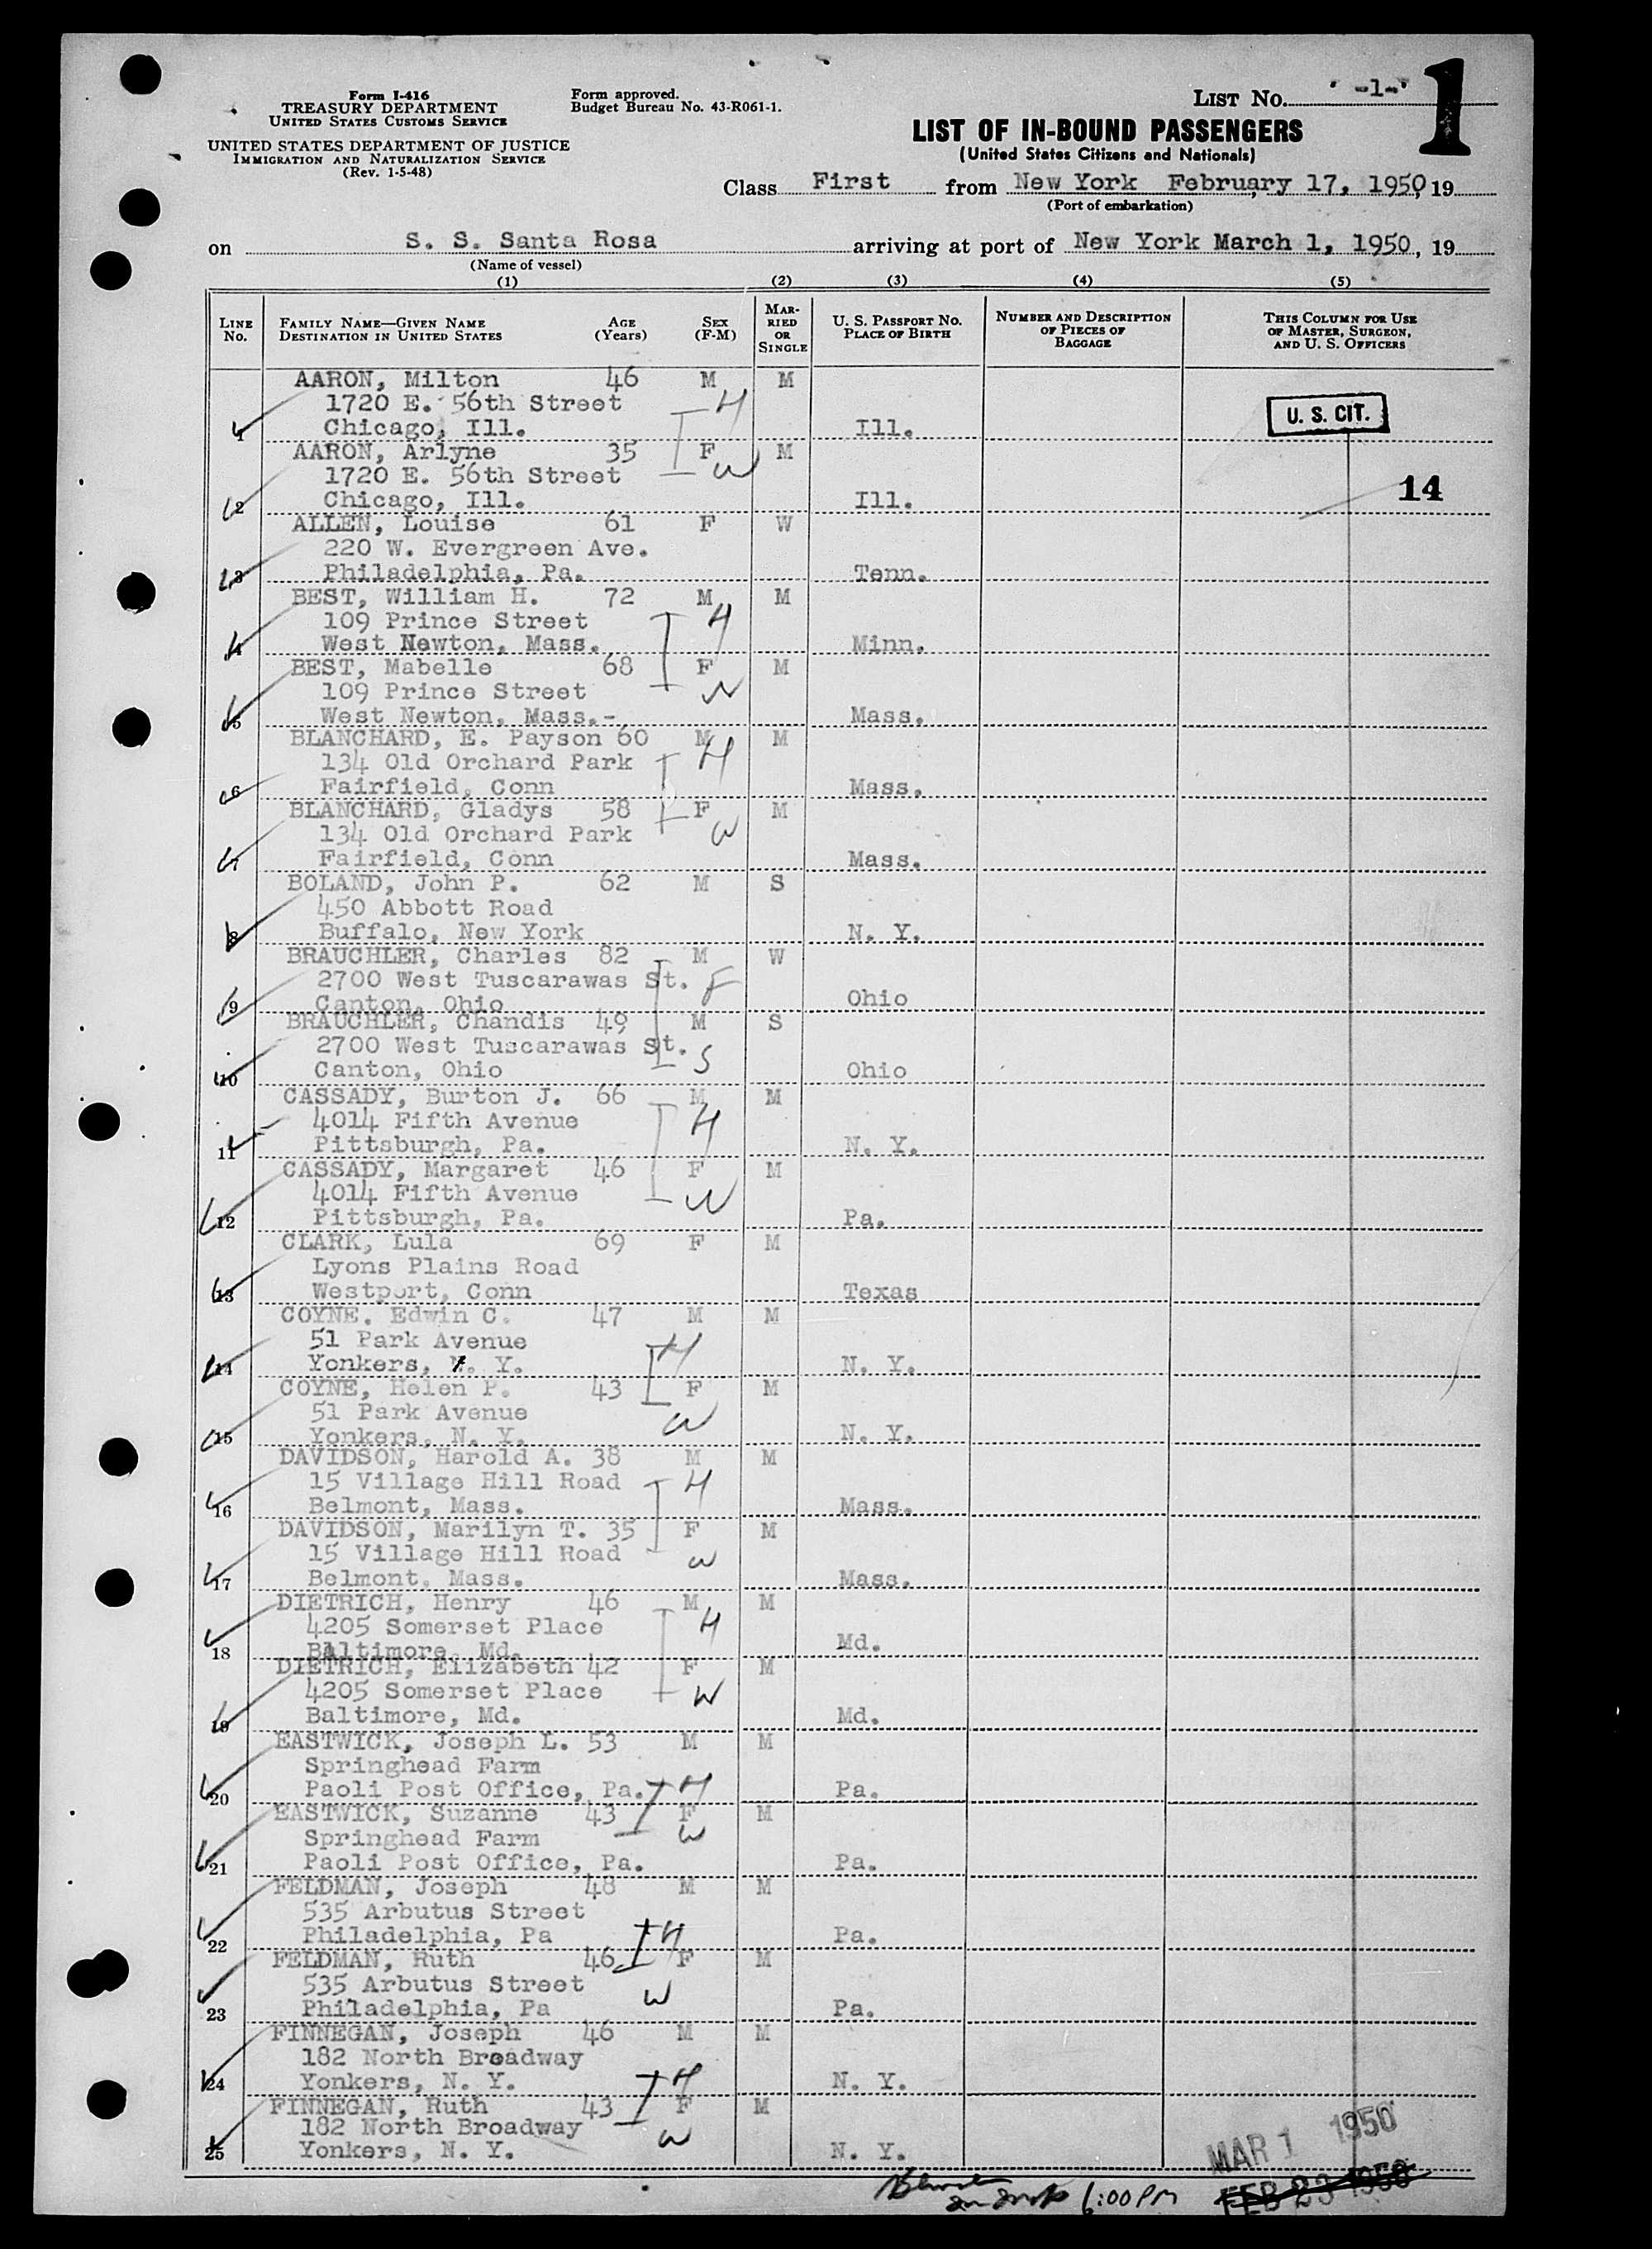 Form I-416
TREASURY DEPARTMENT
UNITED STATES CUSTOMS SERVICE
UNITED STATES DEPARTMENT OF JUSTICE
IMMIGRATION AND NATURALIZATION SERVICE
(Rev. 1-5-48)
Form approved.
Budget Bureau No. 43-R061-1.
LIST NO. -1-
1
LIST OF IN-BOUND PASSENGERS
(United States Citizens and Nationals)
Class First from New York February 17, 1950, 19
(Port of embarkation)
on S. S. Santa Rosa arriving at port of New York March 1, 1950, 19
(Name of vessel)
(1) (2) (3) (4) (5)
LINE NO. FAMILY NAME—GIVEN NAME DESTINATION IN UNITED STATES AGE (Years) SEX (F-M) MARRIED OR SINGLE U. S. PASSPORT NO. PLACE OF BIRTH NUMBER AND DESCRIPTION OF PIECES OF BAGGAGE THIS COLUMN FOR USE OF MASTER, SURGEON, AND U. S. OFFICERS
AARON, Milton 46 M M
1720 E. 56th Street H
1 Chicago, Ill. Ill. U. S. CIT.
AARON, Arlyne 35 F M
1720 E. 56th Street W
2 Chicago, Ill. Ill. 14
ALLEN, Louise 61 F W
220 W. Evergreen Ave.
3 Philadelphia, Pa. Tenn.
BEST, William H. 72 M M
109 Prince Street H
4 West Newton, Mass. Minn.
BEST, Mabelle 68 F M
109 Prince Street W
5 West Newton, Mass.- Mass.
BLANCHARD, E. Payson 60 M M
134 Old Orchard Park H
6 Fairfield, Conn Mass.
BLANCHARD, Gladys 58 F M
134 Old Orchard Park W
7 Fairfield, Conn Mass.
BOLAND, John P. 62 M S
450 Abbott Road
8 Buffalo, New York N. Y.
BRAUCHLER, Charles 82 M W
2700 West Tuscarawas St. F
9 Canton, Ohio Ohio
BRAUCHLER, Chandis 49 M S
2700 West Tuscarawas St. S
10 Canton, Ohio Ohio
CASSADY, Burton J. 66 M M
4014 Fifth Avenue H
11 Pittsburgh, Pa. N. Y.
CASSADY, Margaret 46 F M
4014 Fifth Avenue W
12 Pittsburgh, Pa. Pa.
CLARK, Lula 69 F M
Lyons Plains Road
13 Westport, Conn Texas
COYNE. Edwin C. 47 M M
51 Park Avenue H
14 Yonkers, N. Y. N. Y.
COYNE, Helen P. 43 F M
51 Park Avenue W
15 Yonkers, N. Y. N. Y.
DAVIDSON, Harold A. 38 M M
15 Village Hill Road H
16 Belmont, Mass. Mass.
DAVIDSON, Marilyn T. 35 F M
15 Village Hill Road W
17 Belmont, Mass. Mass.
DIETRICH, Henry 46 M M
4205 Somerset Place H
18 Baltimore, Md. Md.
DIETRICH, Elizabeth 42 F M
4205 Somerset Place W
19 Baltimore, Md. Md.
EASTWICK, Joseph L. 53 M M
Springhead Farm
20 Paoli Post Office, Pa. H Pa.
EASTWICK, Suzanne 43 F M
Springhead Farm W
21 Paoli Post Office, Pa. Pa.
FELDMAN, Joseph 48 M M
535 Arbutus Street
22 Philadelphia, Pa H Pa.
FELDMAN, Ruth 46 F M
535 Arbutus Street W
23 Philadelphia, Pa Pa.
FINNEGAN, Joseph 46 M M
182 North Broadway
24 Yonkers, N. Y. H N. Y.
FINNEGAN, Ruth 43 F M
182 North Broadway W
25 Yonkers, N. Y. N. Y.
MAR 1 1950
6:00 PM FEB 23 1950